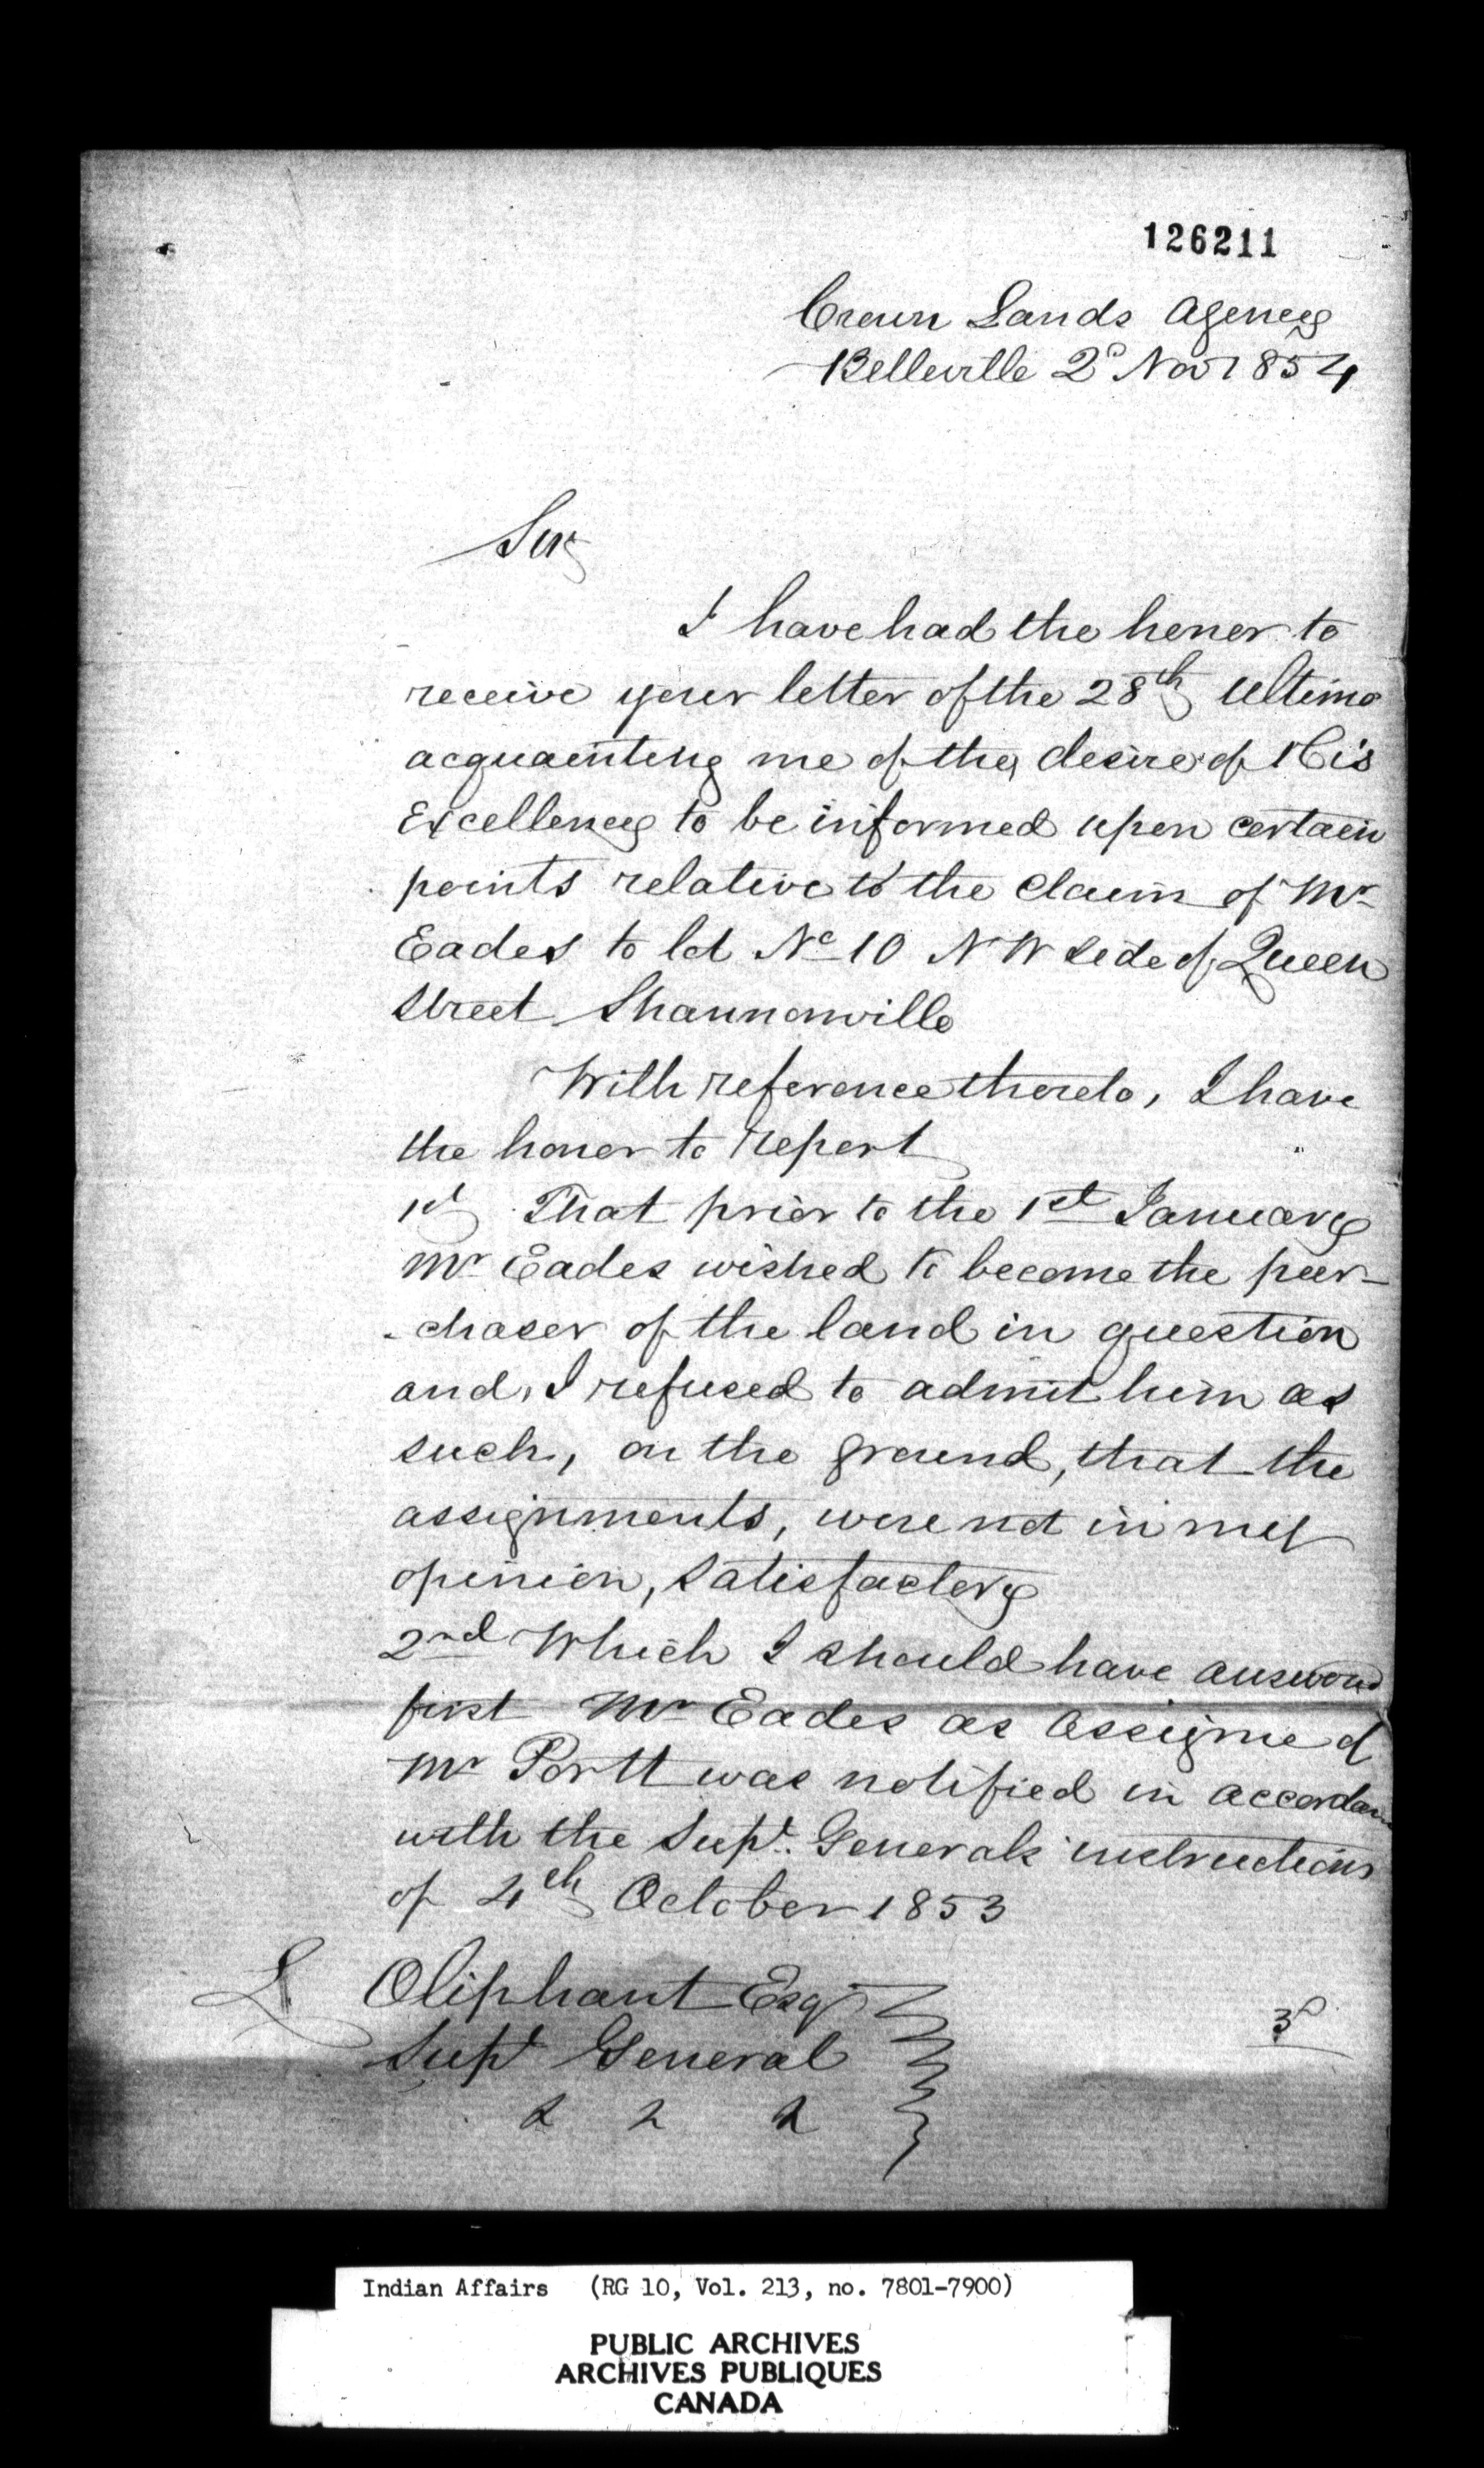 126211
Crown Lands Agency
Belleville 2d Nov 1854
Sir
I have had the honor to
receive your letter of the 28th Ultimo
acquainting me of the desire of His
Excellency to be informed upon certain
points relative to the Claim of Mr
Eades to lot No 10 N W side of Queen
Street Shannonville
With reference thereto, I have
the honor to report
1st That prior to the 1st January
Mr Eades wished to become the pur-
-chaser of the land in question
and, I refused to admit him as
such, on the ground, that the
assignments, were not in my
opinion, satisfactory
2nd Which I should have answered
first Mr Eades as Assignee of
Mr Portt was notified in accordan
with the Supt. Generals instructions
of 4th October 1853
L Oliphant Esqr
Supt General
3d
Indian Affairs (RG 10, Vol. 213, no. 7801-7900)
PUBLIC ARCHIVES
ARCHIVES PUBLIQUES
CANADA